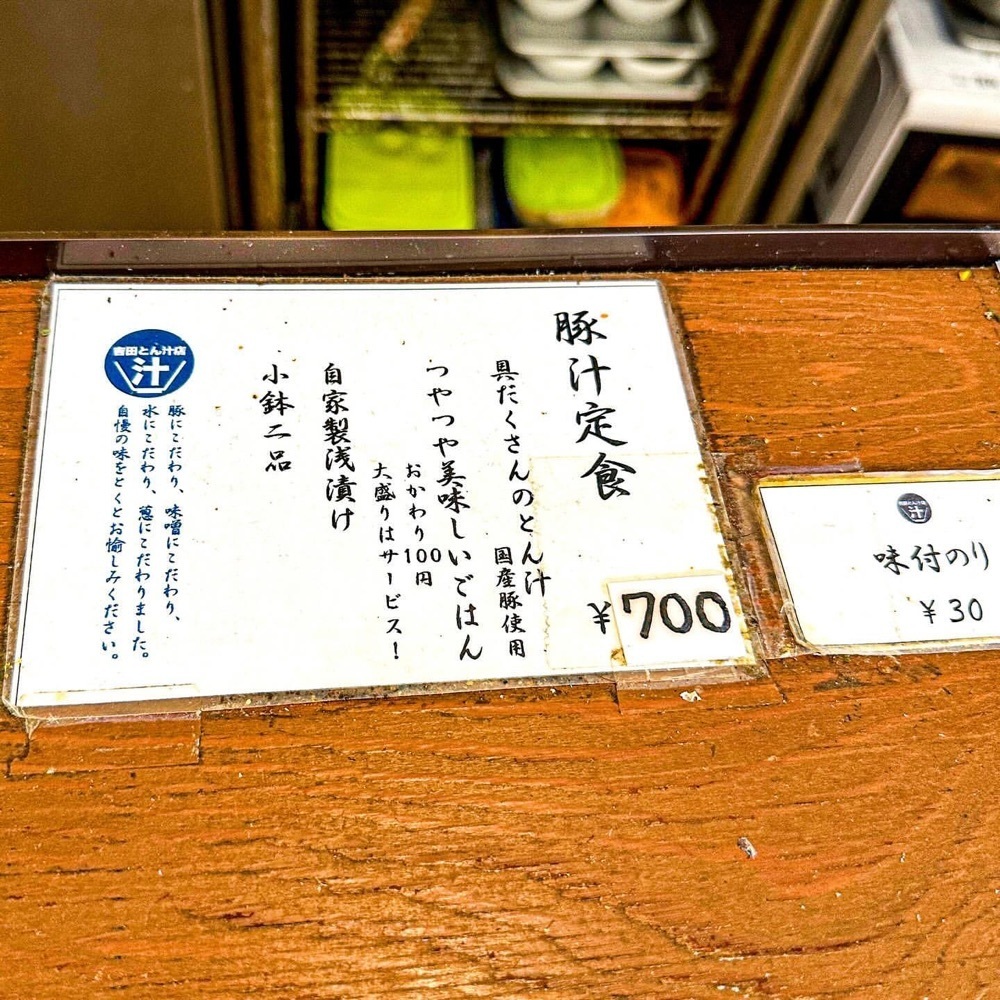 豚汁定食
¥700
具だくさんのとん汁
国産豚使用
つやつや美味しいごはん
おかわり100円
大盛りはサービス!
自家製浅漬け
小鉢二品
吉田とん汁店
汁
豚にこだわり、味噌にこだわり、
水にこだわり、葱にこだわりました。
自慢の味をとくとお愉しみください。
汁
味付のり
¥30